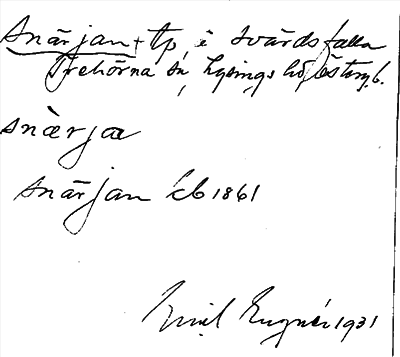 Snärjan + tp, i Svärdsfalla
Trehörna sn, Lysings hd, Östergb.
snèrja
Snärjan kb 1861
Emil Eugnér 1931